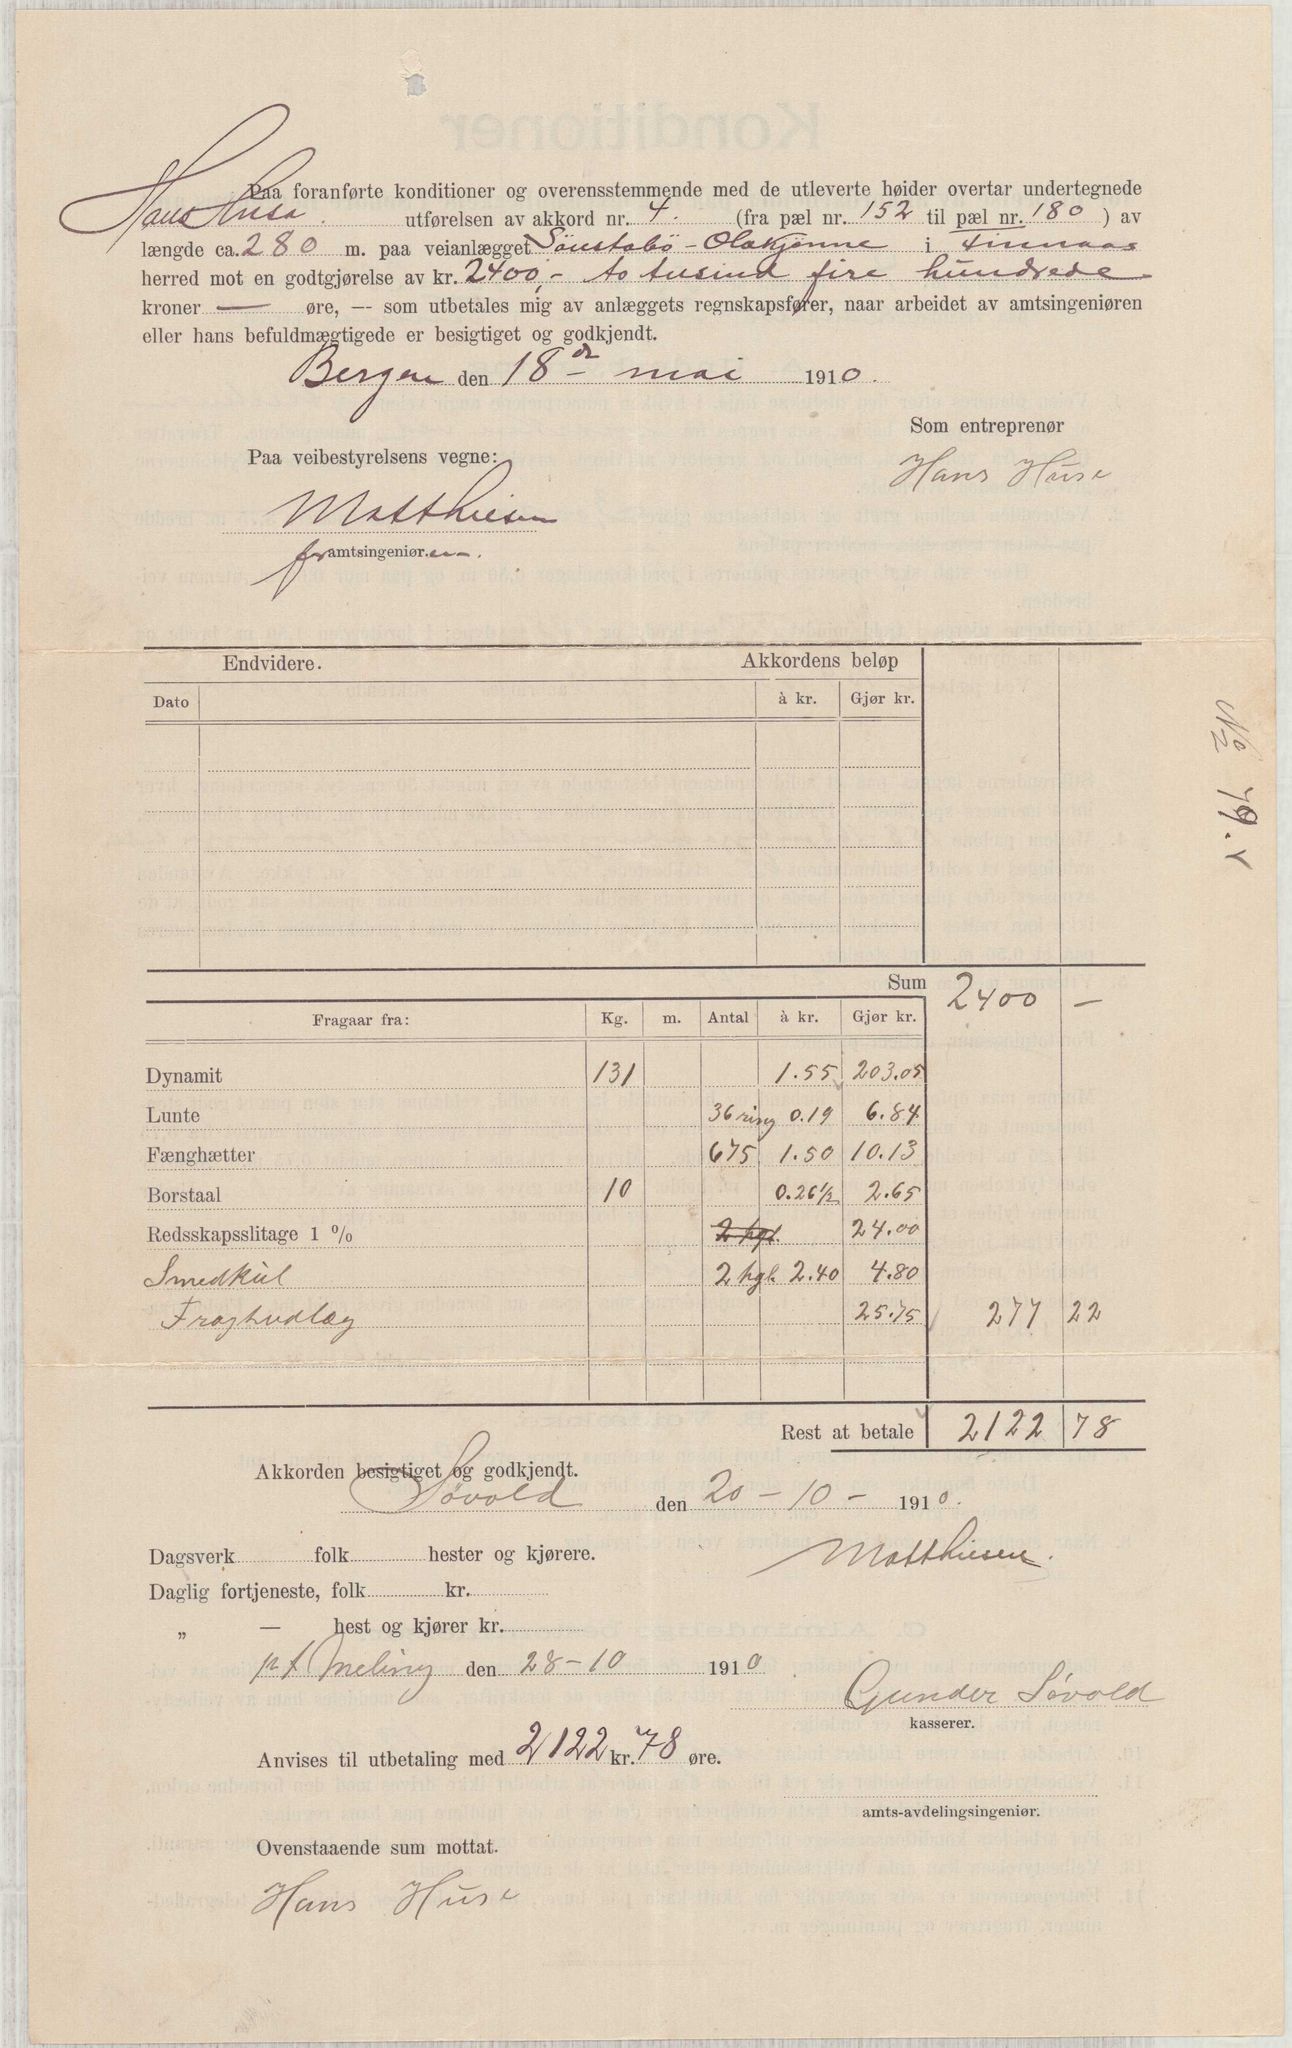 Paa foranførte konditioner og overensstemmende med de utleverte høider overtar undertegnede
Hans Husa utførelsen av akkord nr. 4. (fra pæl nr. 152 til pæl nr. 180 ) av
længde ca. 280 m. paa veianlægget Sönstabö - Olakjønne i Finnaas
herred mot en godtgjørelse av kr. 2400,- to tusind fire hundrede
kroner — øre, — som utbetales mig av anlæggets regnskapsfører, naar arbeidet av amtsingeniøren
eller hans befuldmægtigede er besigtiget og godkjendt.
Bergen den 18de mai 1910.
Som entreprenør
Paa veibestyrelsens vegne:
Hans Huse
Matthiesen
for amtsingeniøren.
Endvidere. Akkordens beløp
Dato à kr. Gjør kr.
No 79.
Sum 2400 —
Fragaar fra: Kg. m. Antal à kr. Gjør kr.
Dynamit 131 1.55 203.05
Lunte 36 ring 0.19 6.84
Fænghætter 675 1.50 10.13
Borstaal 10 0.26½ 2.65
Redsskapsslitage 1 % 2 hgl. 24.00
Smedkul 2 hgl. 2.40 4.80
Fragtudlæg 25.75 277 22
Rest at betale 2122 78
Akkorden besigtiget og godkjendt.
Søvold den 20 - 10 - 1910.
Dagsverk folk hester og kjørere.
Matthiesen.
Daglig fortjeneste, folk kr.
„ — hest og kjører kr.
pt Meling den 28-10 1910
Gunder Søvold
kasserer.
Anvises til utbetaling med 2122 kr. 78 øre.
amts-avdelingsingeniør.
Ovenstaaende sum mottat.
Hans Huse